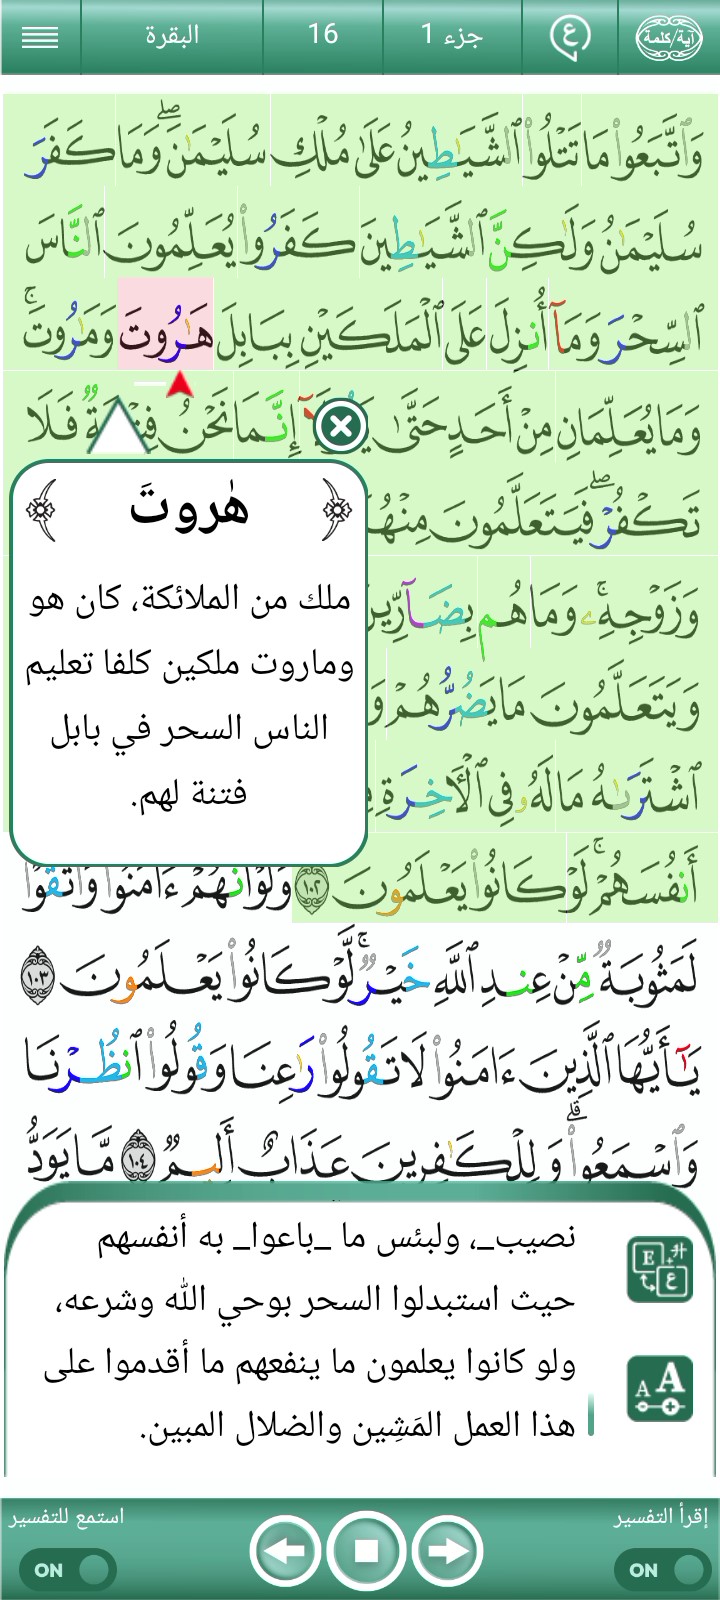 آية/كلمة ع جزء 1 16 البقرة
وَٱتَّبَعُوا۟ مَا تَتْلُوا۟ ٱلشَّيَـٰطِينُ عَلَىٰ مُلْكِ سُلَيْمَـٰنَ ۖ وَمَا كَفَرَ
سُلَيْمَـٰنُ وَلَـٰكِنَّ ٱلشَّيَـٰطِينَ كَفَرُوا۟ يُعَلِّمُونَ ٱلنَّاسَ
ٱلسِّحْرَ وَمَآ أُنزِلَ عَلَى ٱلْمَلَكَيْنِ بِبَابِلَ هَـٰرُوتَ وَمَـٰرُوتَ ۚ
وَمَا يُعَلِّمَانِ مِنْ أَحَدٍ حَتَّىٰ إِنَّمَا نَحْنُ فَلَا
تَكْفُرْ ۖ فَيَتَعَلَّمُونَ
وَزَوْجِهِۦ ۚ وَمَا هُم
وَيَتَعَلَّمُونَ مَا يَضُرُّهُمْ
ٱشْتَرَىٰهُ مَا لَهُۥ فِى ٱلْـَٔاخِرَةِ
أَنفُسَهُمْ ۚ لَوْ كَانُوا۟ يَعْلَمُونَ ١٠٢ وَلَوْ أَنَّهُمْ ءَامَنُوا۟ وَٱتَّقَوْا۟
لَمَثُوبَةٌ مِّنْ عِندِ ٱللَّهِ خَيْرٌ ۖ لَّوْ كَانُوا۟ يَعْلَمُونَ ١٠٣
يَـٰٓأَيُّهَا ٱلَّذِينَ ءَامَنُوا۟ لَا تَقُولُوا۟ رَٰعِنَا وَقُولُوا۟ ٱنظُرْنَا
وَٱسْمَعُوا۟ ۗ وَلِلْكَـٰفِرِينَ عَذَابٌ أَلِيمٌ ١٠٤ مَّا يَوَدُّ
هٰروتَ
ملك من الملائكة، كان هو
وماروت ملكين كلفا تعليم
الناس السحر في بابل
فتنة لهم.
نصيب_، ولبئس ما _باعوا_ به أنفسهم
حيث استبدلوا السحر بوحي الله وشرعه،
ولو كانوا يعلمون ما ينفعهم ما أقدموا على
هذا العمل المَشِين والضلال المبين.
إقرأ التفسير استمع للتفسير
ON ON